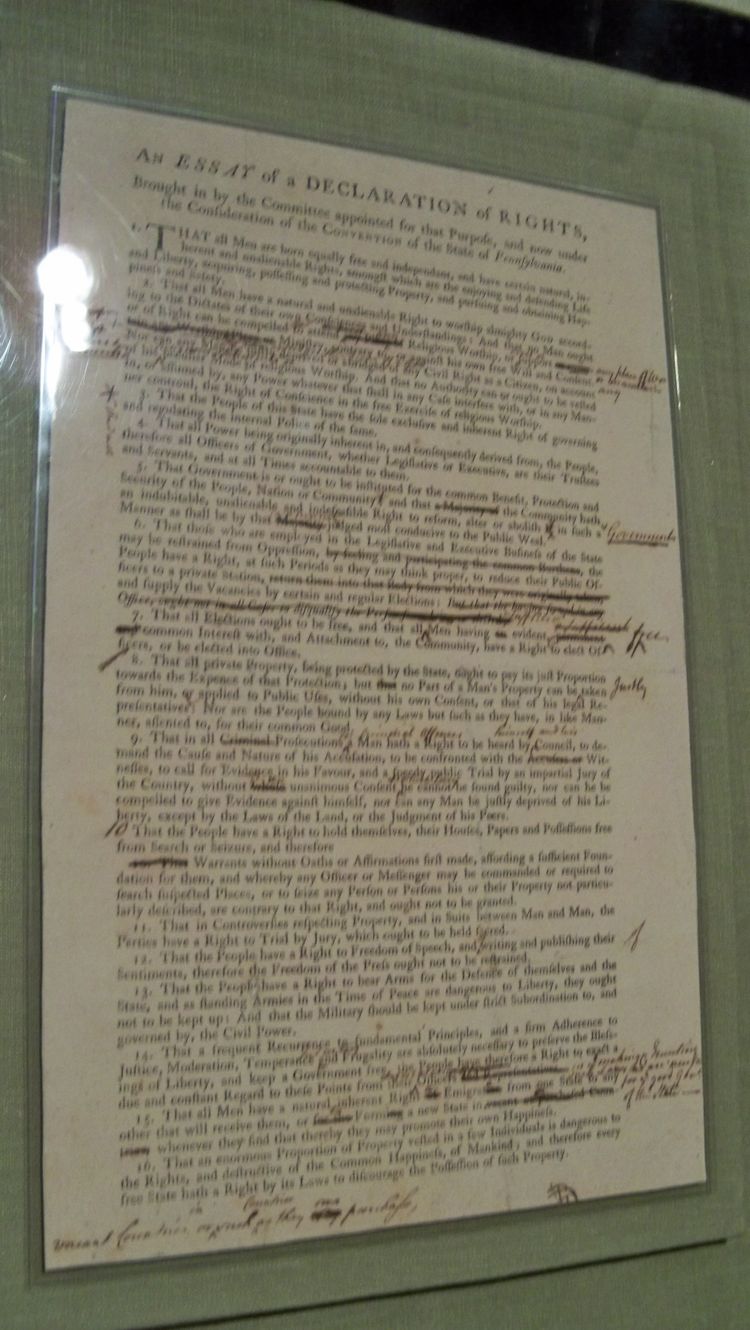 AN ESSAY of a DECLARATION of RIGHTS,
Brought in by the Committee appointed for that Purpoſe, and now under
the Conſideration of the CONVENTION of the State of Pennſylvania.
1. THAT all Men are born equally free and independent, and have certain natural, in-
herent and unalienable Rights, amongſt which are the enjoying and defending Life
and Liberty, acquiring, poſſeſſing and protecting Property, and purſuing and obtaining Hap-
pineſs and Safety.
2. That all Men have a natural and unalienable Right to worſhip almighty God accord-
ing to the Dictates of their own Conſciences and Underſtandings: And that no Man ought
or of Right can be compelled to attend any Religious Worſhip, or ſupport any place of
Miniſtry, contrary to or againſt his own free Will and Conſent
Nor can any be juſtly deprived or abridged of any Civil Right as a Citizen, on account
of his peculiar Mode of religious Worſhip. And that no Authority can or ought to be veſted
in, or aſſumed by, any Power whatever that ſhall in any Caſe interfere with, or in any Man-
ner controul, the Right of Conſcience in the free Exerciſe of religious Worſhip.
3. That the People of this State have the ſole excluſive and inherent Right of governing
and regulating the internal Police of the ſame.
4. That all Power being originally inherent in, and conſequently derived from, the People,
therefore all Officers of Government, whether Legiſlative or Executive, are their Truſtees
and Servants, and at all Times accountable to them.
5. That Government is or ought to be inſtituted for the common Benefit, Protection and
Security of the People, Nation or Community and that a Majority of the Community hath
an indubitable, unalienable and indefeaſible Right to reform, alter or aboliſh in ſuch a Government
Manner as ſhall be by that Majority judged moſt conducive to the Public Weal.
6. That thoſe who are employed in the Legiſlative and Executive Buſineſs of the State
may be reſtrained from Oppreſſion, by feeling and participating the common Burthens, the
People have a Right, at ſuch Periods as they may think proper, to reduce their Public Of-
ficers to a private Station, return them into that Body from which they were originally taken,
and ſupply the Vacancies by certain and regular Elections: But that the having ſerved in any
Office, ought not in all Caſes to diſqualify the Perſon
7. That all Elections ought to be free, and that all Men having evident
common Intereſt with, and Attachment to, the Community, have a Right to elect Of-
ficers, or be elected into Office.
8. That all private Property, being protected by the State, ought to pay its juſt Proportion
towards the Expence of that Protection; but no Part of a Man's Property can be taken Juſtly
from him, or applied to Public Uſes, without his own Conſent, or that of his legal Re-
preſentatives: Nor are the People bound by any Laws but ſuch as they have, in like Man-
ner, aſſented to, for their common Good.
himself and his
9. That in all Criminal Proſecutions a Man hath a Right to be heard by Council, to de-
mand the Cauſe and Nature of his Accuſation, to be confronted with the Accuſers or Wit-
neſſes, to call for Evidence in his Favour, and a ſpeedy public Trial by an impartial Jury of
the Country, without whoſe unanimous Conſent he cannot be found guilty, nor can he be
compelled to give Evidence againſt himſelf, nor can any Man be juſtly deprived of his Li-
berty, except by the Laws of the Land, or the Judgment of his Peers.
10 That the People have a Right to hold themſelves, their Houſes, Papers and Poſſeſſions free
from Search or Seizure, and therefore
Warrants without Oaths or Affirmations firſt made, affording a ſufficient Foun-
dation for them, and whereby any Officer or Meſſenger may be commanded or required to
ſearch ſuſpected Places, or to ſeize any Perſon or Perſons his or their Property not particu-
larly deſcribed, are contrary to that Right, and ought not to be granted.
11. That in Controverſies reſpecting Property, and in Suits between Man and Man, the
Parties have a Right to Trial by Jury, which ought to be held ſacred.
12. That the People have a Right to Freedom of Speech, and writing and publiſhing their of
Sentiments, therefore the Freedom of the Preſs ought not to be reſtrained.
13. That the People have a Right to bear Arms for the Defence of themſelves and the
State, and as ſtanding Armies in the Time of Peace are dangerous to Liberty, they ought
not to be kept up: And that the Military ſhould be kept under ſtrict Subordination to, and
governed by, the Civil Power.
14. That a frequent Recurrence to fundamental Principles, and a firm Adherence to
Juſtice, Moderation, Temperance and Frugality are abſolutely neceſſary to preſerve the Bleſſ-
ings of Liberty, and keep a Government free, the People have therefore a Right to exact a
due and conſtant Regard to theſe Points from their Officers
15. That all Men have a natural inherent Right to Emigrate from one State to any
other that will receive them, or Forming a new State in vacant
whenever they find that thereby they may promote their own Happineſs.
16. That an enormous Proportion of Property veſted in a few Individuals is dangerous to
the Rights, and deſtructive of the Common Happineſs, of Mankind; and therefore every
free State hath a Right by its Laws to diſcourage the Poſſeſſion of ſuch Property.
Countries
vacant Countries or in such as they purchase,